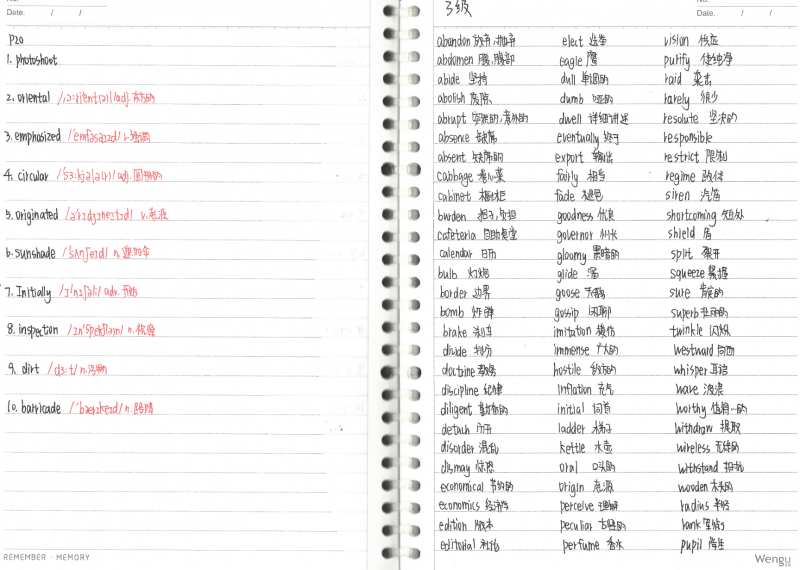 Date. / /
P20
1. photoshoot
2. oriental /ˌɔːriˈentl/ adj. 东方的
3. emphasized /ˈemfəsaɪzd/ v. 强调
4. circular /ˈsɜːkjələ(r)/ adj. 圆形的
5. originated /əˈrɪdʒɪneɪtɪd/ v. 起源
6. sunshade /ˈsʌnʃeɪd/ n. 遮阳伞
7. Initially /ɪˈnɪʃəli/ adv. 开始
8. inspection /ɪnˈspekʃ(ə)n/ n. 检验
9. dirt /dɜːt/ n. 污物
10. barricade /ˈbærɪkeɪd/ n. 路障
REMEMBER · MEMORY
3级
No.
Date. / /
abandon 放弃,抛弃 elect 选举 vision 视应
abdomen 腹,腹部 eagle 鹰 purify 使纯净
abide 坚持 dull 单调的 raid 袭击
abolish 废除 dumb 哑的 rarely 很少
abrupt 突然的,意外的 dwell 详细讲述 resolute 坚决的
absence 缺席 eventually 终于 responsible
absent 缺席的 export 输出 restrict 限制
cabbage 卷心菜 fairly 相当 regime 政体
cabinet 橱柜 fade 褪色 siren 汽笛
burden 担子,负担 goodness 优良 shortcoming 短处
cafeteria 自助食堂 governor 州长 shield 盾
calendar 日历 gloomy 黑暗的 split 裂开
bulb 灯泡 glide 溜 squeeze 紧握
border 边界 goose sure 肯定的
bomb 炸弹 gossip 闲聊 superb
brake 刹车 imitation 模仿 twinkle 闪烁
divide 划分 immense 广大的 westward 向西
doctrine 教条 hostile 敌方的 whisper 耳语
discipline 纪律 inflation 充气 wave 波浪
diligent 勤奋的 initial 词首 worthy 值得…的
detach 分开 ladder 梯子 withdraw 提取
disorder 混乱 kettle 水壶 wireless 无线的
dismay 惊恐 oral 口头的 withstand 抵抗
economical 节约的 origin 起源 wooden 木头的
economics 经济学 perceive 理解 radius 半径
edition 版本 peculiar 古怪的 rank
editorial 社论 perfume 香水 pupil 学生
Wengu